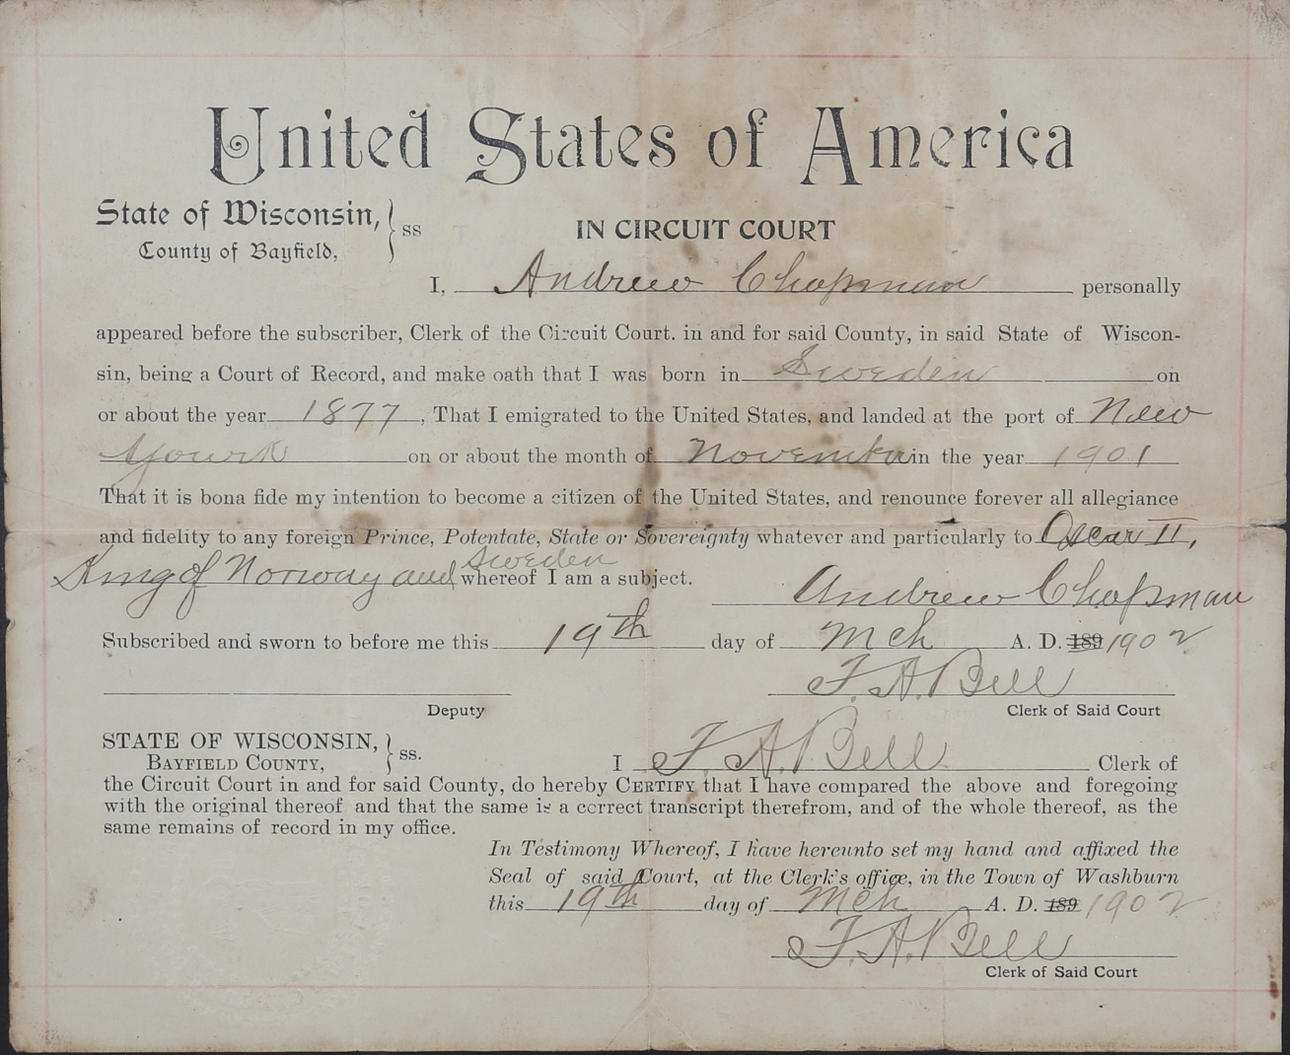 United States of America
State of Wisconsin, } ss
County of Bayfield,
IN CIRCUIT COURT
I, Andrew Chapman personally
appeared before the subscriber, Clerk of the Circuit Court. in and for said County, in said State of Wiscon-
sin, being a Court of Record, and make oath that I was born in Sweden on
or about the year 1877, That I emigrated to the United States, and landed at the port of New
Yourk on or about the month of November in the year 1901
That it is bona fide my intention to become a citizen of the United States, and renounce forever all allegiance
and fidelity to any foreign Prince, Potentate, State or Sovereignty whatever and particularly to Oscar II,
King of Norway and Sweden whereof I am a subject.
Andrew Chapman
Subscribed and sworn to before me this 19th day of Mch A. D. 189 1902
F. A. Bell
Deputy
Clerk of Said Court
STATE OF WISCONSIN, } ss.
BAYFIELD COUNTY,
I F. A. Bell Clerk of
the Circuit Court in and for said County, do hereby CERTIFY that I have compared the above and foregoing
with the original thereof and that the same is a correct transcript therefrom, and of the whole thereof, as the
same remains of record in my office.
In Testimony Whereof, I have hereunto set my hand and affixed the
Seal of said Court, at the Clerk's office, in the Town of Washburn
this 19th day of Mch A. D. 189 1902
F. A. Bell
Clerk of Said Court